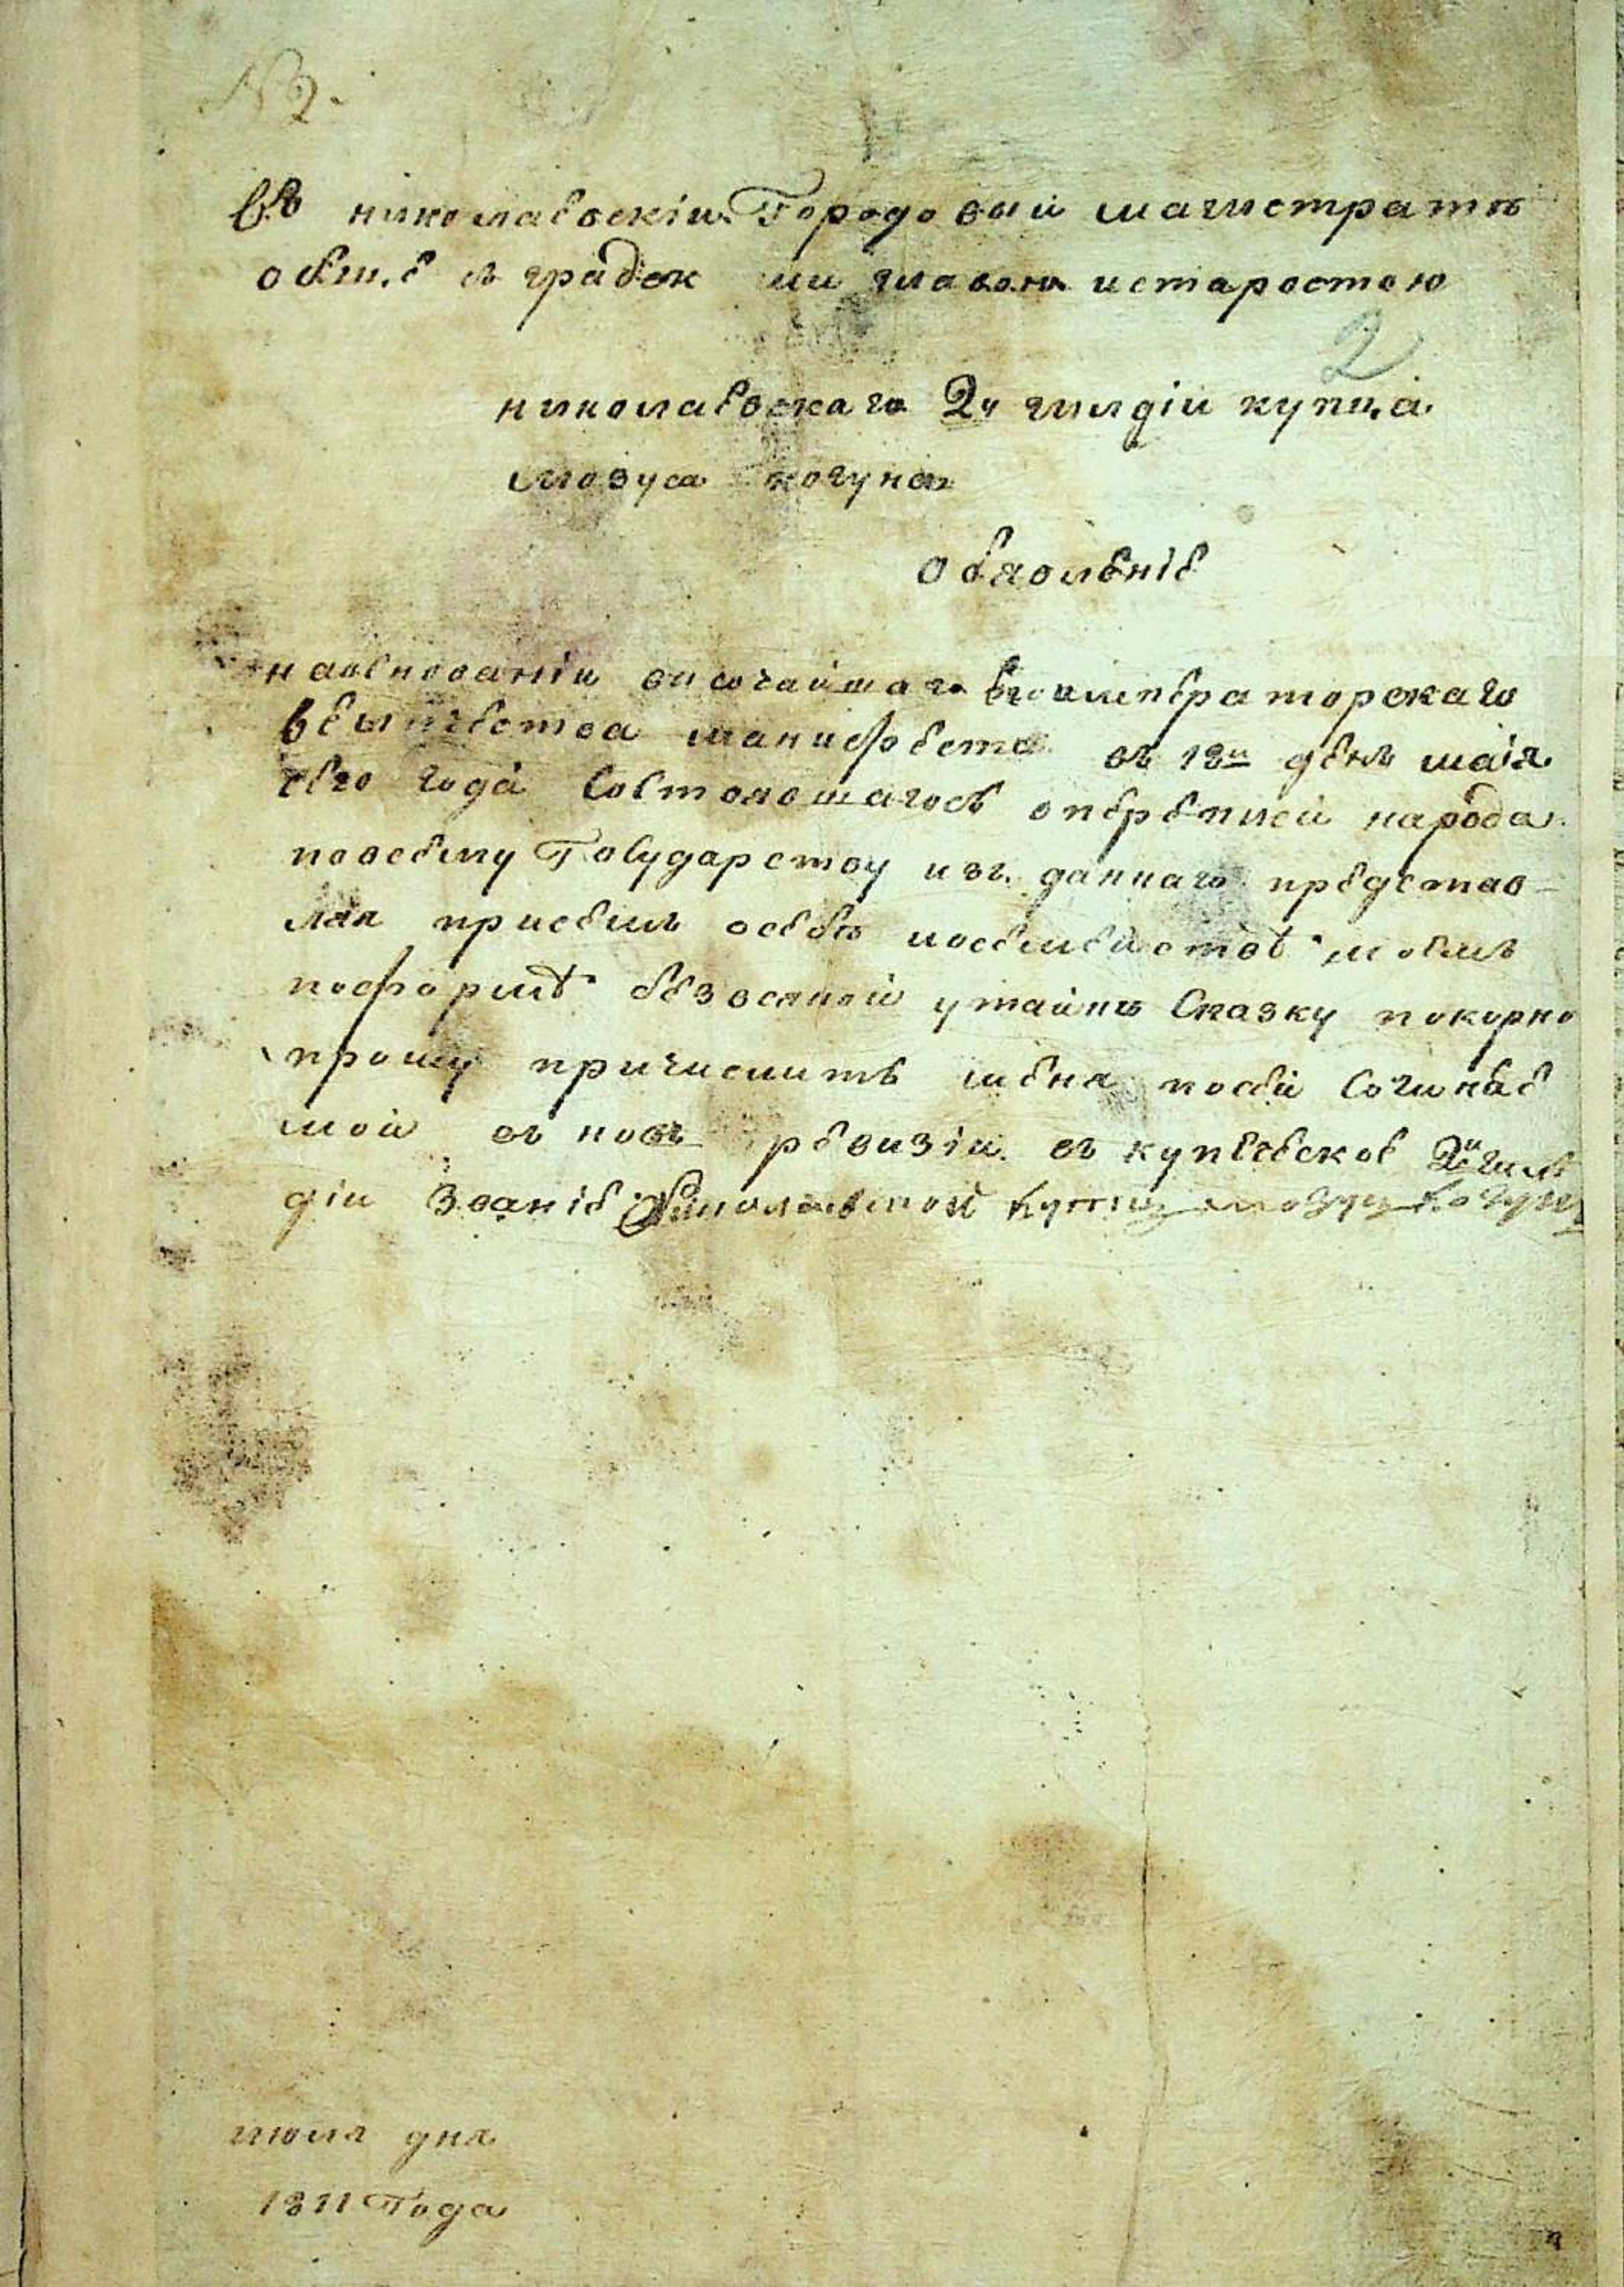 № 2.
въ николаевскій Городовый магистратъ
общ.е съ градск ми главою истаростою
2
николаевскаго 2й гилдіи купца
мозуса когуна
обявленіе
наоснованіи высочайшаго Его императорскаго
велычества манифеста въ 18й день маія
сего года Состоявшагось опереписи народа
повсему Государству изъ даннаго представ-
ляя присемъ осебѣ исемействѣ моемъ
поформѣ безвсякой утайкѣ Сказку покорно
прошу причислить меня посей Сочиняе
мой въ новъ ревизіи въ купеческое 2й гил
діи Званіе Николаевской купец мозус когун
июля дня
1811 Года